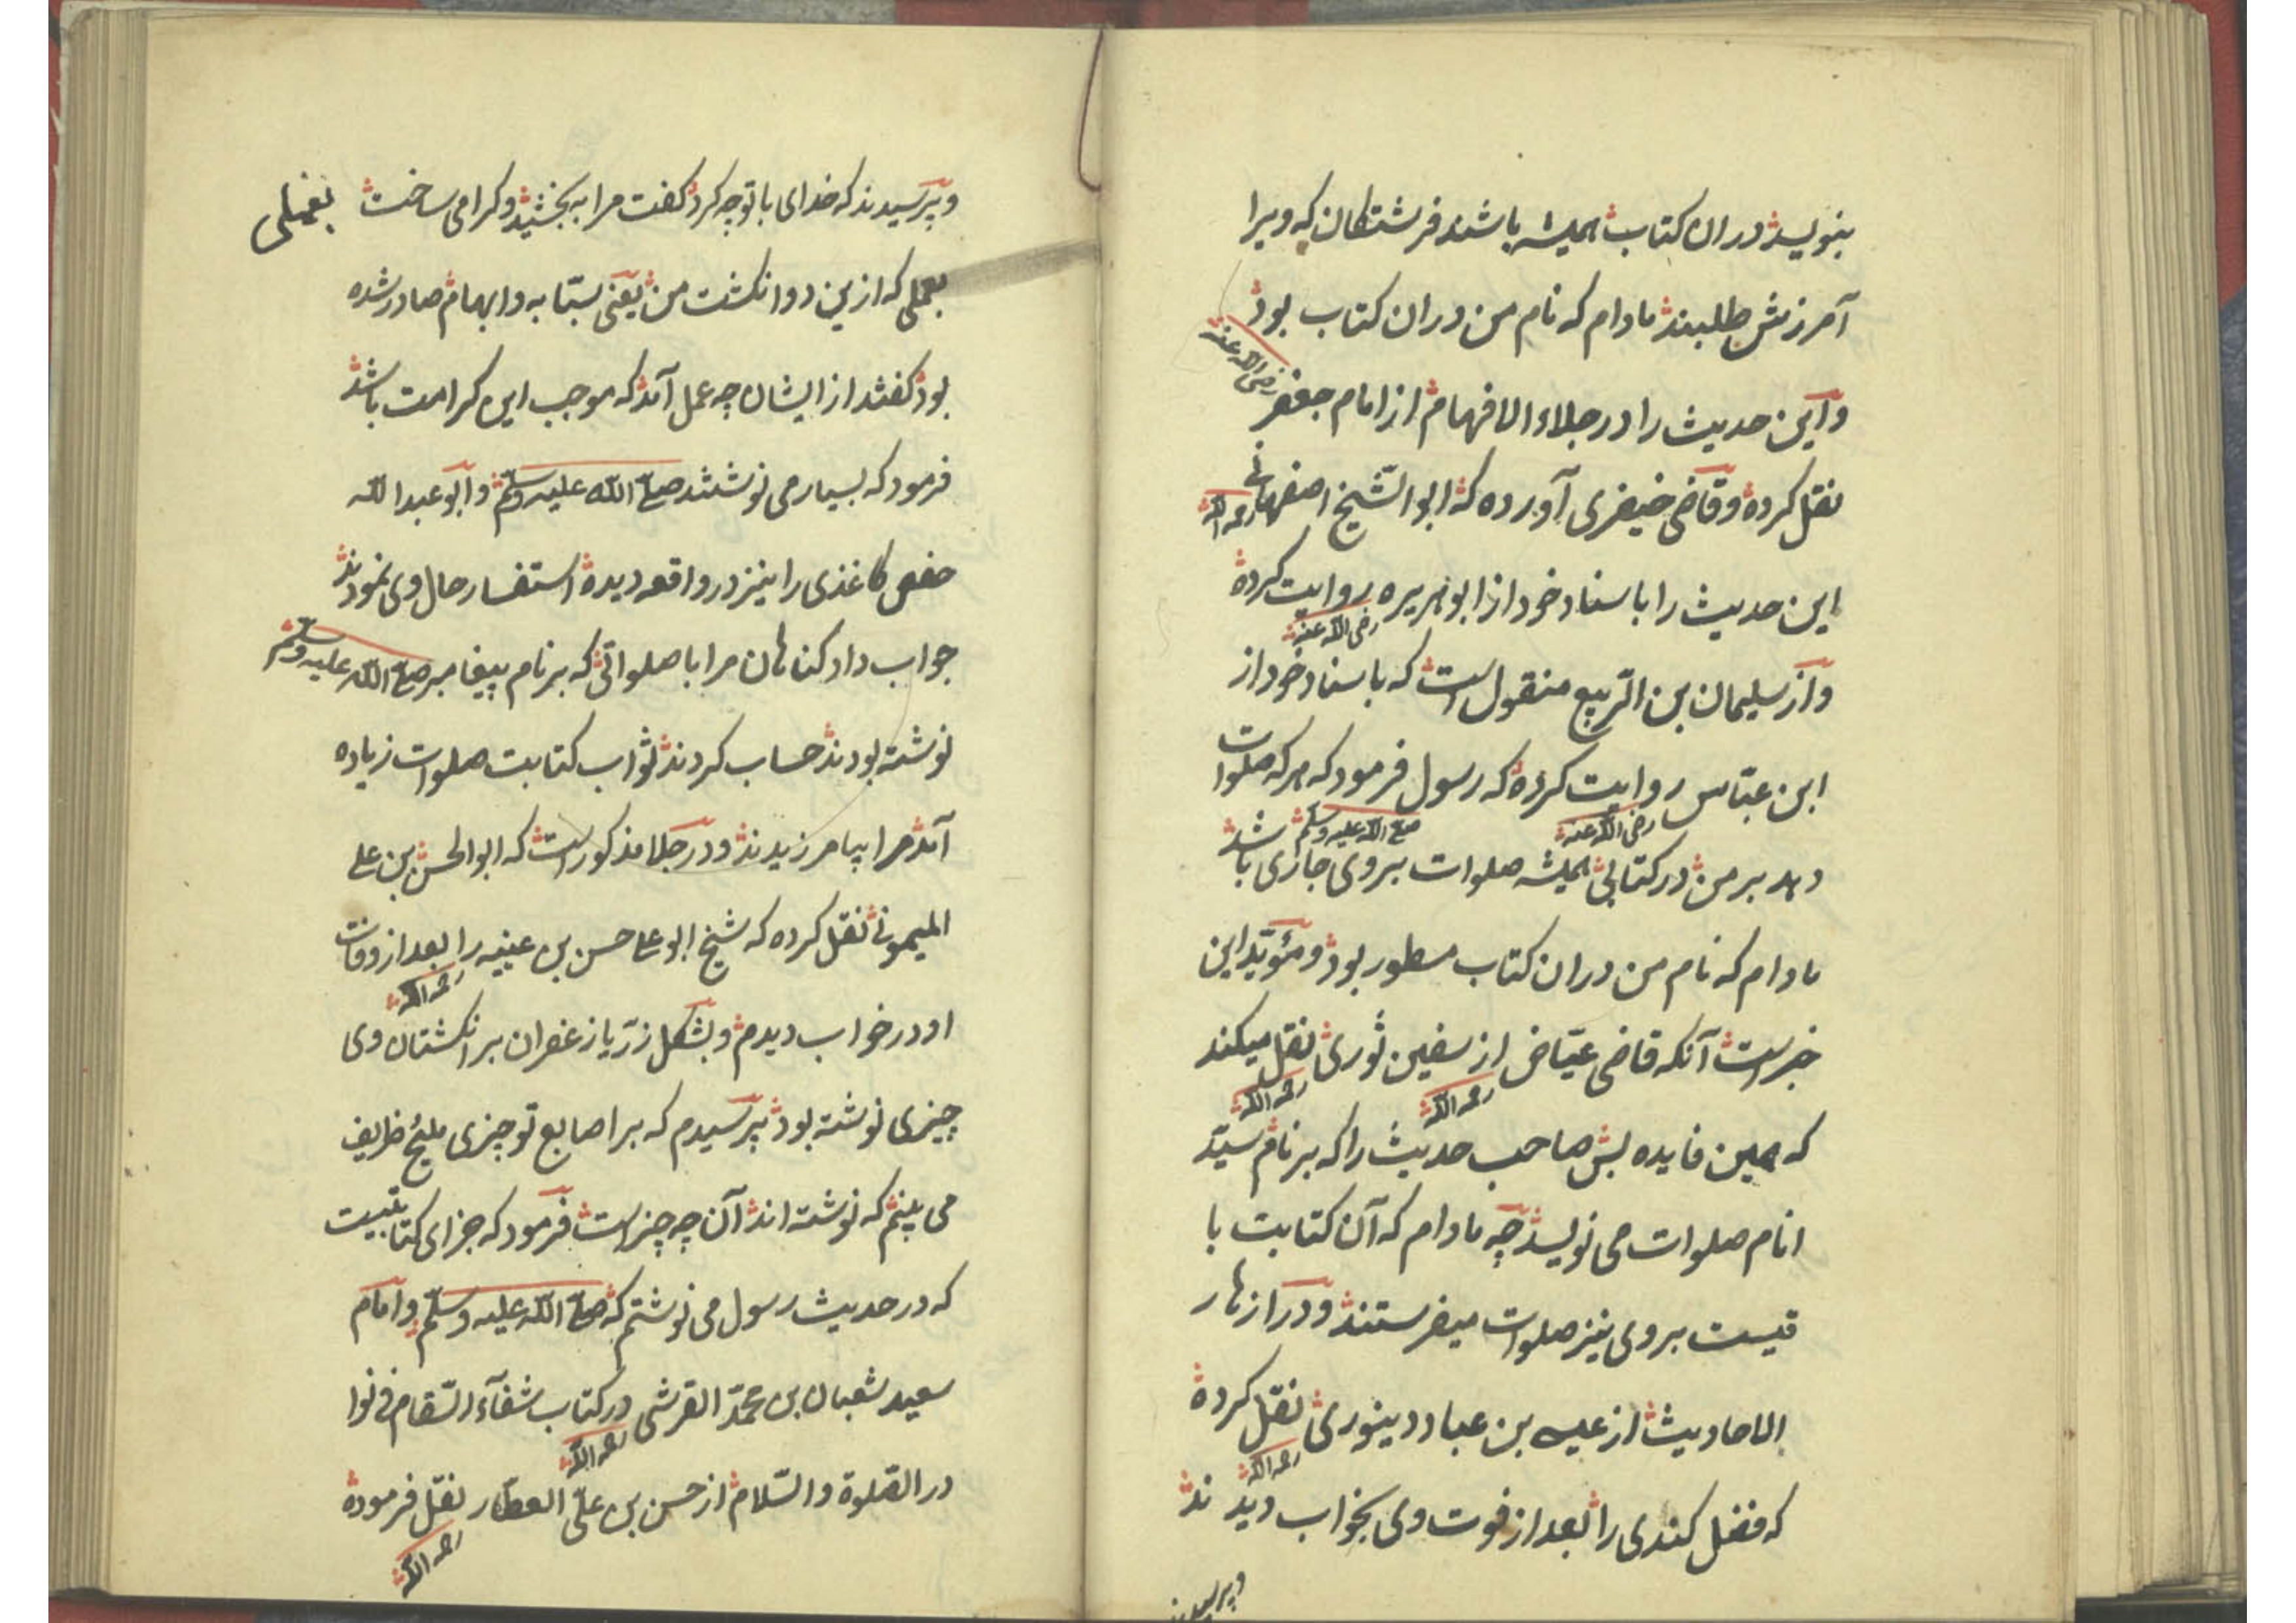 بنویسد دران کتاب همیشه باشند فرشتکان که ویرا
آمرزش طلبند مادام که نام من دران کتاب بود
واین حدیث را در جلاء الافهام از امام جعفر رضی الله عنه
نقل کرده وقاضی خیضری آورده که ابو الشیخ اصفهانی رحمه الله
این حدیث را باسناد خود از ابو هریره رضی الله عنه روایت کرده
واز سلیمان بن الربیع منقول است که باسناد خود از
ابن عباس رضی الله عنه روایت کرده که رسول صلی الله علیه وسلم فرمود که هر که صلوات
دهد بر من در کتابی همیشه صلوات بروی جاری باشد
مادام که نام من دران کتاب مسطور بود ومؤید این
خبر است آنکه قاضی عیاض رحمه الله از سفین ثوری رحمه الله نقل میکند
که همین فایده بس صاحب حدیث را که بر نام سید
انام صلوات می نویسد چه مادام که آن کتابت با
قیست بروی نیز صلوات میفرستند ودر ازهار
الاحادیث از عیسی بن عباد دینوری رحمه الله نقل کرده
که فضل کندی را بعد از فوت وی بخواب دیدند
وپرسیدند
وپرسیدند که خدای با تو چه کرد کفت مرا به بخشید وکرامی ساخت بعملی
بعملی که ازین دو انکشت من یعنی سبّابه وابهام صادر شده
بود کفتند از ایشان چه عمل آمد که موجب این کرامت باشد
فرمود که بسیار می نوشتند صلی الله علیه وسلم وابو عبد الله
حفص کاغذی را نیز در واقعه دیده استفسار حال وی نمودند
جواب داد کناهان مرا با صلواتی که بر نام پیغامبر صلی الله علیه وسلم
نوشته بودند حساب کردند ثواب کتابت صلوات زیاده
آمد مرا بیامرزیدند ودر جلا مذکور است که ابو الحسن بن علی
المیمونی نقل کرده که شیخ ابو علی حسن بن عیینه رحمه الله را بعد از وفات
او در خواب دیدم وبشکل زر یا زعفران بر انکشتان وی
چیزی نوشته بود پرسیدم که بر اصابع تو چیزی ملیح ظریف
می بینم که نوشته اند آن چه چیز است فرمود که جزای کتابتیست
که در حدیث رسول می نوشتم که صلی الله علیه وسلم وامام
سعید شعبان بن محمد القرشی رحمه الله در کتاب شفآء السقام فی نوا
در الصلوة والسلام از حسن بن علی العطار رحمه الله نقل فرموده